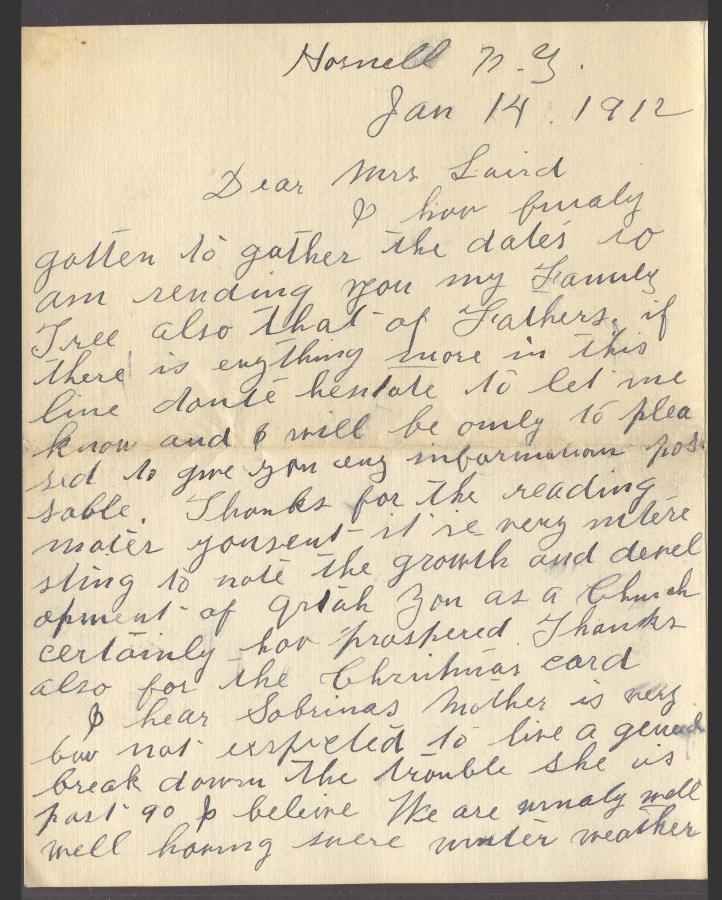 Hornell N.Y.
Jan 14. 1912
Dear Mrs Laird
I hav finaly
gotten to gather the dates so
am sending you my Family
Tree also that of Fathers. if
there is enything more in this
line donte hesitate to let me
know and I will be only to plea
sed to give you eny information pos
sable. Thanks for the reading
mater yousent it is very intere
sting to note the growth and devel
opment of Zon as a Church
certainly hav prospered Thanks
also for the Christmas card
I hear Sabrinas Mother is very
low not exspected to live a general
break down the trouble she is
past 90 I beleive We are usualy well
well having severe winter weather